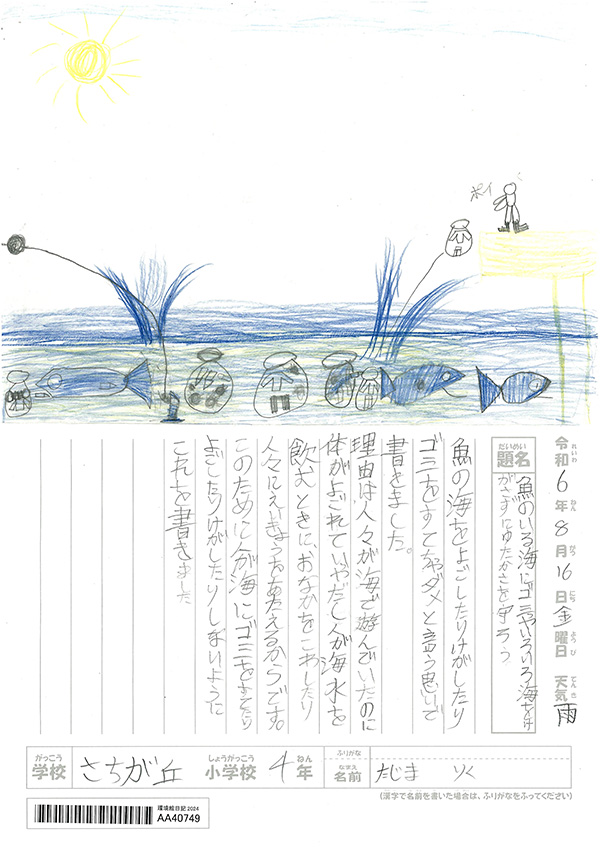 ポイ
令和6年8月16日金曜日 天気雨
題名
魚のいる海にゴミやいろいろ海をけ
がさずにゆたかさを守ろう
魚の海をよごしたりけがしたり
ゴミをすてちゃダメと言う思いで
書きました。
理由は人々が海で遊んでいたのに
体がよごれていやだし人が海水を
飲むときに、おなかをこわしたり
人々にえいきょうおあたえるからです。
このために人が海にゴミをすてたり
よごしたりけがしたりしないように
これを書きました
学校 さちが丘 小学校 4年 名前 たじま りく
(漢字で名前を書いた場合は、ふりがなをふってください)
環境絵日記 2024
AA40749